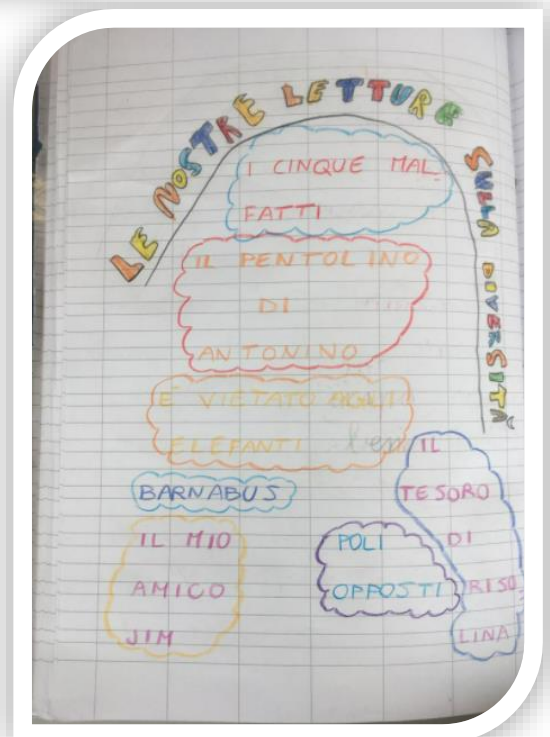 LE NOSTRE LETTURE SULLA DIVERSITÀ
I CINQUE MAL
FATTI
IL PENTOLINO
DI
ANTONINO
E' VIETATO AGLI
ELEFANTI
BARNABUS
IL MIO
AMICO
JIM
POLI
OPPOSTI
IL
TESORO
DI
RISO
LINA